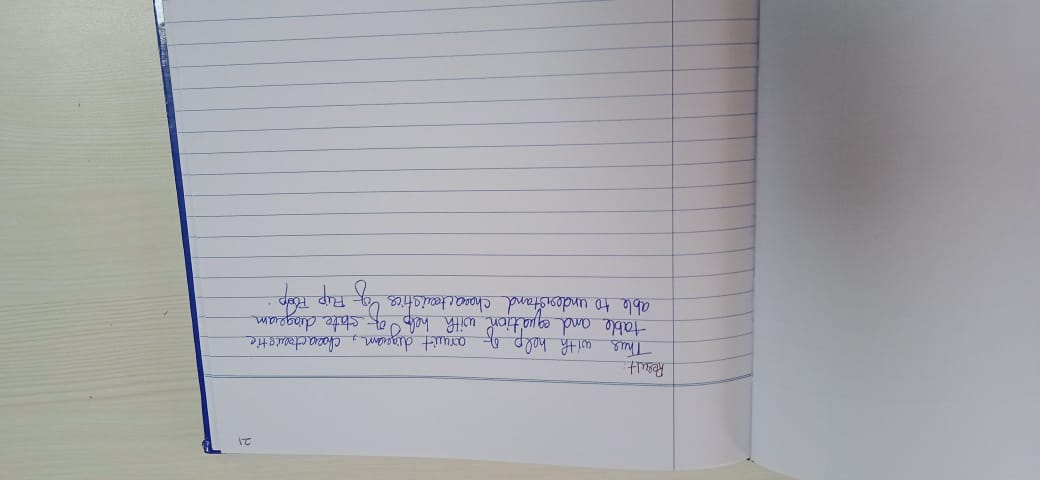 21
Result:
Thus with help of circuit diagram, characteristic
table and equation with help of state diagram
able to understand characteristics of Flip Flop.